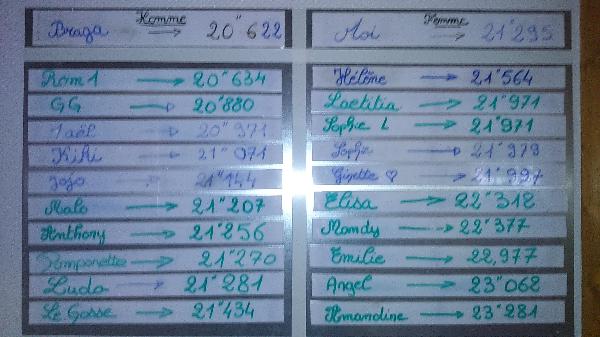 Homme
Braga → 20"622
Rom1 → 20"634
GG → 20"880
Jaël → 20"971
Kiki → 21"071
Jojo → 21"144
Malo → 21"207
Anthony → 21"256
→ 21"270
Ludo → 21"281
Le Gosse → 21"434
Femme
Moi → 21"295
Hélène → 21"564
Laetitia → 21"971
Sophie L → 21"971
Sophie → 21"979
Ginette ♡ → 21"997
Elisa → 22"312
Mandy → 22"377
Emilie → 22,977
Angel → 23"062
Amandine → 23"281